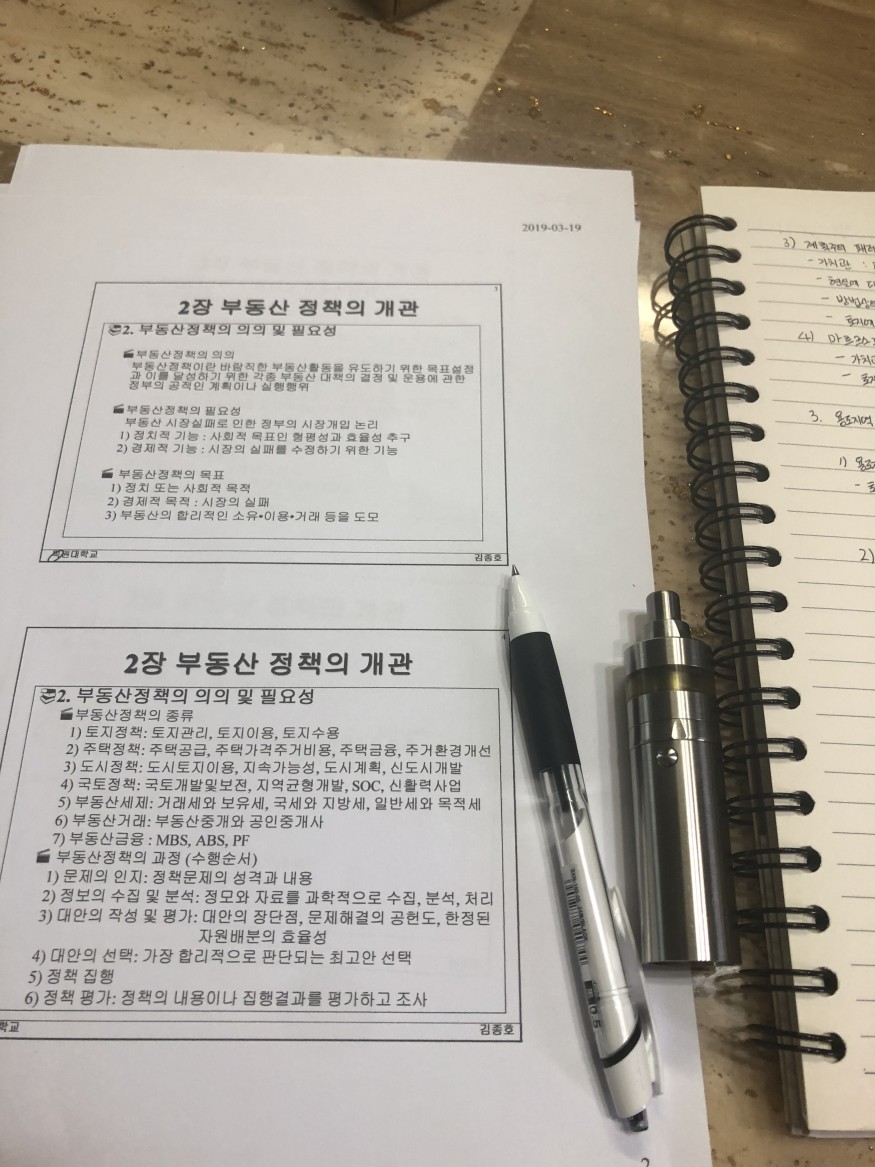 2019-03-19
3
2장 부동산 정책의 개관
2. 부동산정책의 의의 및 필요성
부동산정책의 의의
부동산정책이란 바람직한 부동산활동을 유도하기 위한 목표설정
과 이를 달성하기 위한 각종 부동산 대책의 결정 및 운용에 관한
정부의 공적인 계획이나 실행행위
부동산정책의 필요성
부동산 시장실패로 인한 정부의 시장개입 논리
1) 정치적 기능 : 사회적 목표인 형평성과 효율성 추구
2) 경제적 기능 : 시장의 실패를 수정하기 위한 기능
부동산정책의 목표
1) 정치 또는 사회적 목적
2) 경제적 목적 : 시장의 실패
3) 부동산의 합리적인 소유•이용•거래 등을 도모
대학교
김종호
4
2장 부동산 정책의 개관
2. 부동산정책의 의의 및 필요성
부동산정책의 종류
1) 토지정책: 토지관리, 토지이용, 토지수용
2) 주택정책: 주택공급, 주택가격주거비용, 주택금융, 주거환경개선
3) 도시정책: 도시토지이용, 지속가능성, 도시계획, 신도시개발
4) 국토정책: 국토개발및보전, 지역균형개발, SOC, 신활력사업
5) 부동산세제: 거래세와 보유세, 국세와 지방세, 일반세와 목적세
6) 부동산거래: 부동산중개와 공인중개사
7) 부동산금융 : MBS, ABS, PF
부동산정책의 과정 (수행순서)
1) 문제의 인지: 정책문제의 성격과 내용
2) 정보의 수집 및 분석: 정모와 자료를 과학적으로 수집, 분석, 처리
3) 대안의 작성 및 평가: 대안의 장단점, 문제해결의 공헌도, 한정된
자원배분의 효율성
4) 대안의 선택: 가장 합리적으로 판단되는 최고안 선택
5) 정책 집행
6) 정책 평가: 정책의 내용이나 집행결과를 평가하고 조사
학교
김종호
2
0.5
3)
- 가치관 :
- 현실에
4)
3. 용도지역
1)
2)